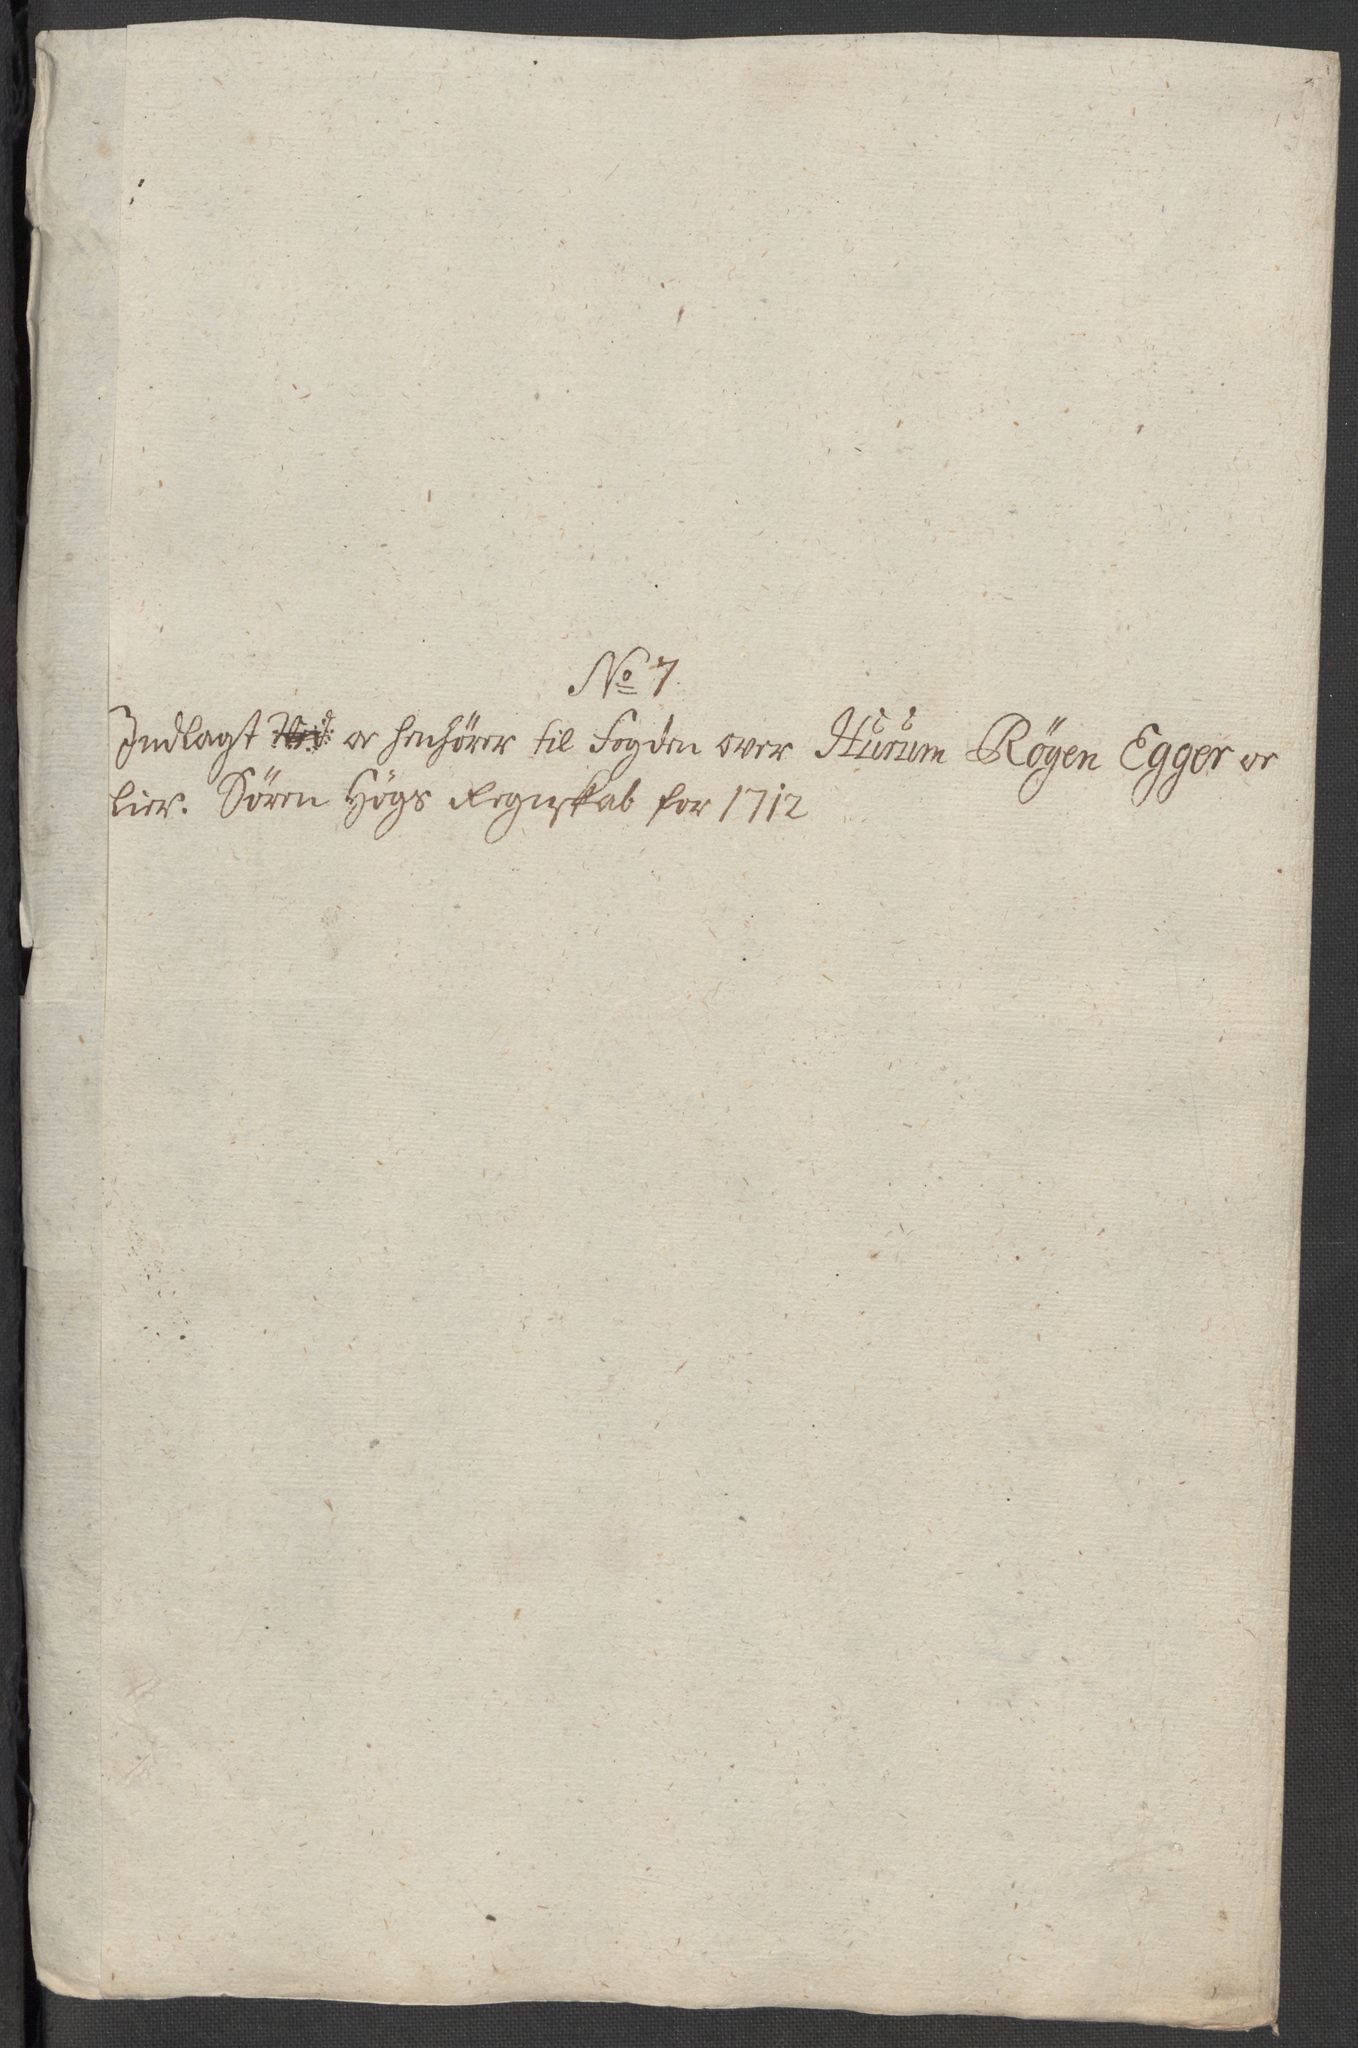 No 7
Indlagt oc henhører til Fogden over Hurum Røgen Egger oc
Lier. Søren Høgs Regnskab for 1712